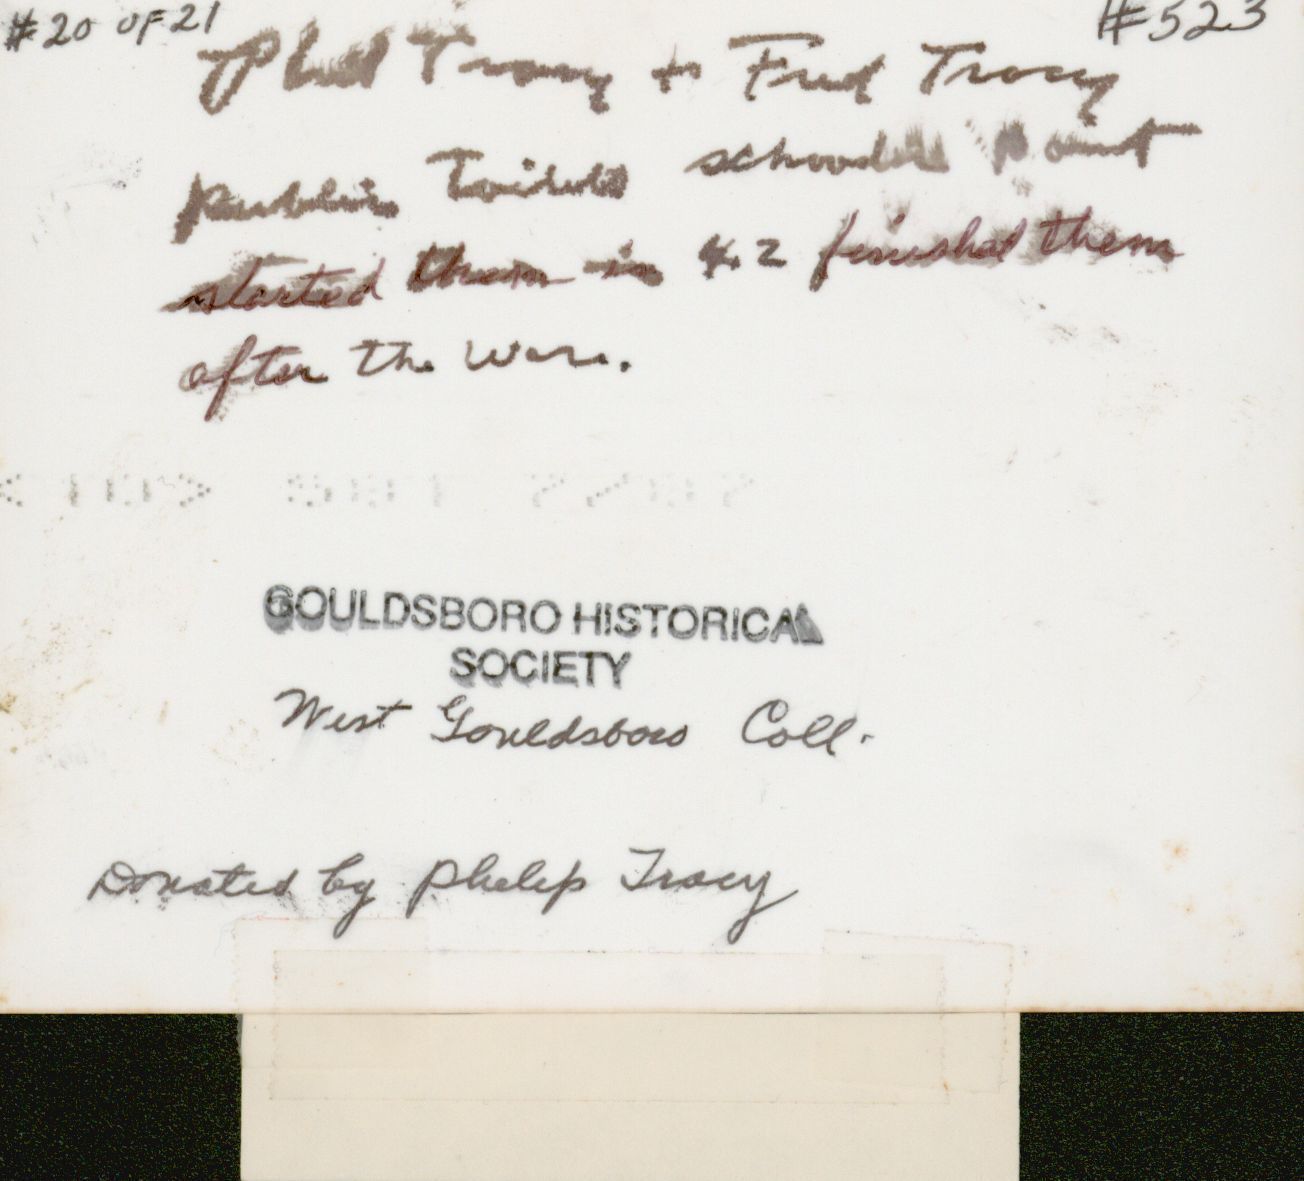 #20 OF 21 #523
Phil Tracy + Fred Tracy
Public Toilets schoodic Point
started them in 42 finished them
after the War.
GOULDSBORO HISTORICAL
SOCIETY
West Gouldsboro Coll.
Donated by Philip Tracy